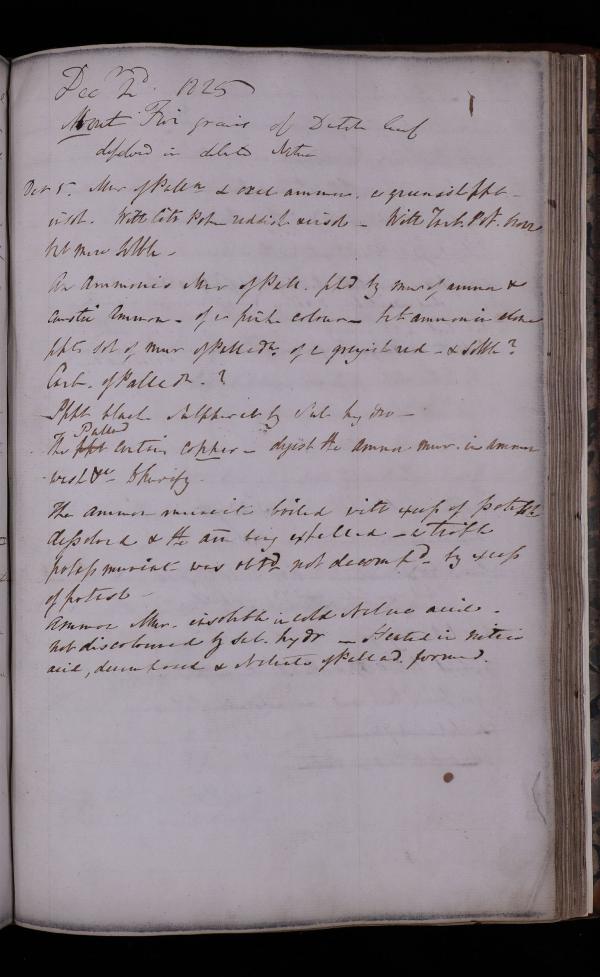 Decr 2d. 1825
About Five grains of Dutch leaf
dissolved in dilute Nitric
Dec 5. Mur of Palladm & oxal ammon. a greenish ppt
insol. With Potsh reddish insol - With Tart. Pot.
but more soluble -
An Ammonio Mur of Pall. ptd by mur of ammon &
caustic Ammon - of a pink colour - but ammonia alone
ppts sol of mur of Palladm. of a greyish red - & soluble?
Carb. of Palladm. - ?
Pppt black Sulphuret by Sul hydro -
The Pallad contains copper - digest the ammon mur. in ammon
wash &c & purify.
The ammon muriate boiled with excess of potash
dissolved & the am being expelled - a triple
potass muriate was obtd. not decompd. by excess
of potash -
Ammon Mur. insoluble in cold Nitric acid -
not discoloured by sul. hydr - Heated in nitric
acid, decomposed & Nitrate of Pallad. formed.